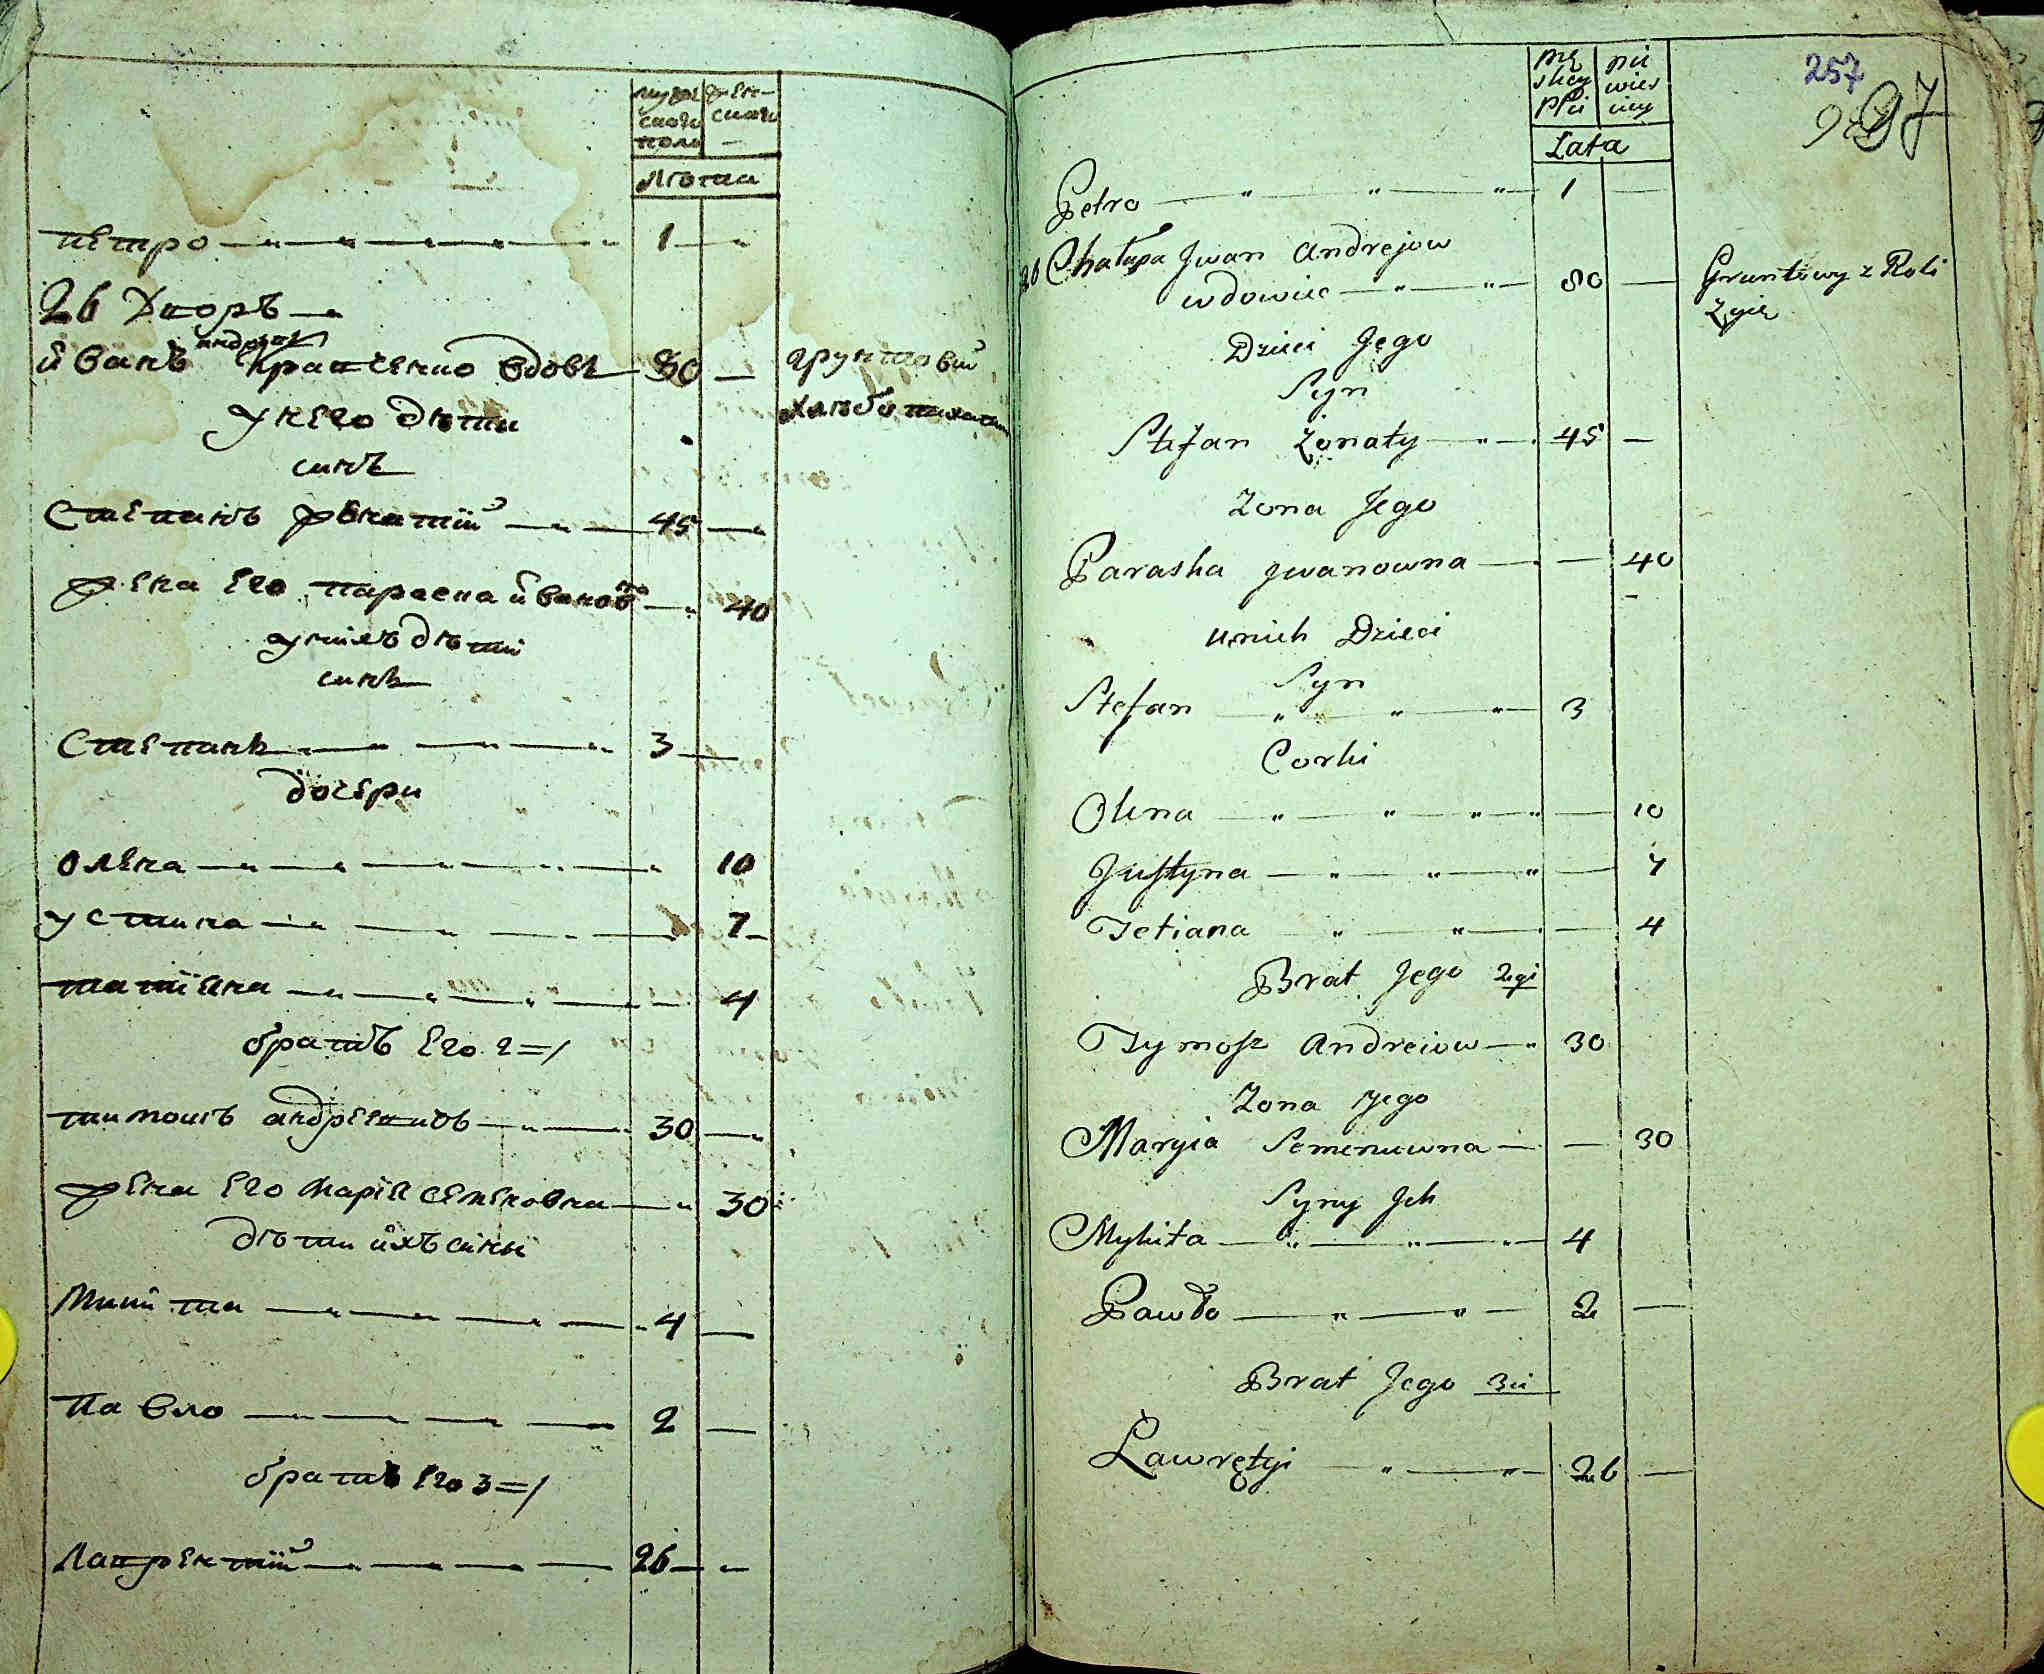 мужескаго полу
женскаго
Лѣта
петро 1
26 Дворъ
иванъ андреевъ Кравченко вдовъ 80 грунтовый
у него дѣти
синъ
Степанъ жонатій 45
жена его параска иванов 40
у нихъ дѣти
синъ
Степанъ 3
дочери
олена 10
устина 7
татіяна 4
братъ его 2=й
тимошъ андреевичъ 30
жена его марія семеновна 30
дѣти ихъ сины
микита 4
павло 2
братъ его 3=й
лаврентій 26
257
97
męskey płci
niewiesciey
Lata
Petro 1
26 Chałupa Jwan Andrejow
wdowiec 80 Gruntowy z Roli
żyie
Dzieci Jego
Syn
Stefan żonaty 45
Żona Jego
Paraska Jwanowna 40
u nich Dzieci
Syn
Stefan 3
Corki
Olena 10
Justyna 7
Tetiana 4
Brat Jego 2gi
Tymosz Andreiow 30
Żona Jego
Maryia Semenowna 30
Syny Jch
Mykita 4
Pawło 2
Brat Jego 3ci
Lawrętyi 26